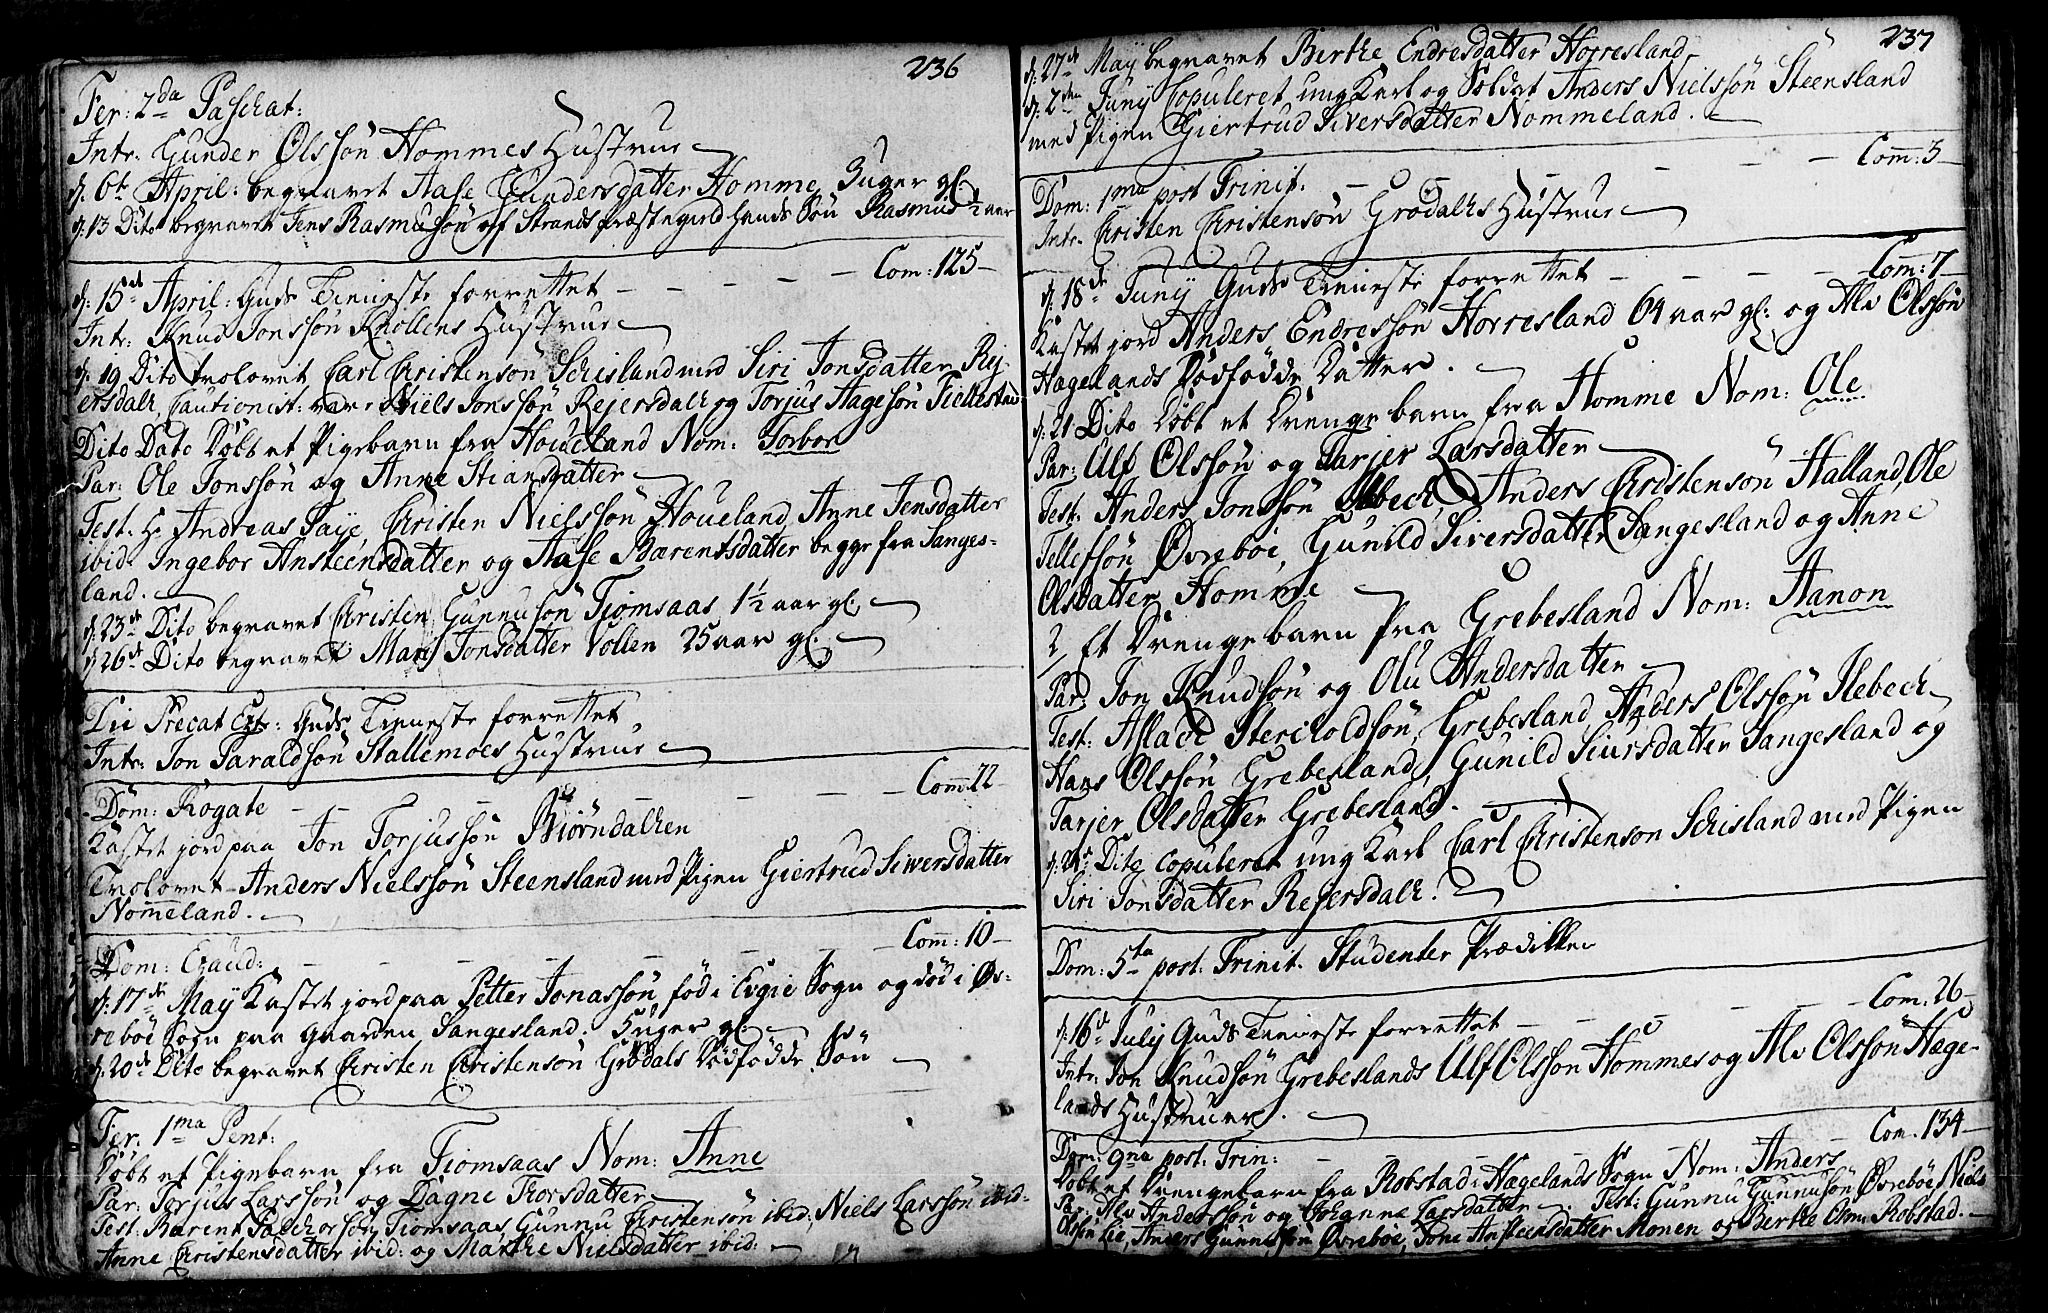 236
Fer: 2da Paschat:
Intr: Gunder Olssön Hommes Hustrue
d. 6te April: begravet Aase Gundersdatter Homme 3 uger gl.
d. 13 Dito begravet Jens Rasmusön af Strands præstegield hands Sön Rasmus ½ aar
d: 15de April: Guds Tieneste forrettet — — — — Com: 125
Intr: Knud Jonssön Knollens Hustrue
d. 19 Dito trolovet Carl Christensön Schisland med Siri Jonsdatter Rej
ersdalh, Cautionist: var Niels Jonssön Rejersdalh og Torjus Aagesön Fiellestad
Dito Dato Döbt et Pigebarn fra Houeland Nom: Torbor
Par: Ole Jonssön og Anne Stiansdatter
Test: Hr Andreas Faye, Christen Nielssön Houeland, Anne Jensdatter
ibid. Ingebor Ansteensdatter og Aase Bærentsdatter begge fra Sanges-
land.
d: 23de Dito begravet Christen Gunnusön Fiomsaas 1½ aar gl.
d 26de Dito begravet Mari Jonsdatter Vollen 25 aar gl.
Die Precat Ext: Guds Tieneste forrettet
Intr: Jon Taraldsön Stallemoes Hustrue
Dom: Rogate — — — — — — Comm: 22
Kastet jord paa Jon Torjussön Biörndalhen
Trolovet Anders Nielssön Steensland med Pigen Giertrud Siwersdatter
Nommeland.
Dom: Exaud: — — — — — — Com: 10
d: 17de Maÿ Kastet jord paa Petter Jonassön, föd i Evgie Sogn og död i Öv-
reböe Sogn paa Gaarden Sangesland. 5 uger gl.
d. 20de Dito begravet Christen Christensön Grödals Dödfödde Sön
Fer: 1ma Pent:
Döbt et Pigebarn fra Fiomsaas Nom: Anne
Par: Torjus Larssön og Dagne Torsdatter
Test: Barent Fiomsaas, Gunnu Christensön ibid, Niels Larssön ibid.
Anne Christensdatter ibid: og Marthe Nielsdatter ibid:
237
d: 27de Maÿ begravet Berthe Endresdatter Horresland
d. 2den Junÿ Copuleret ung Karl og Soldat Anders Nielssön Steensland
med Pigen Giertrud Siversdatter Nommeland.
Dom: 1ma post Trinit. — — — — — Com: 3
Intr. Christen Christensön Grödalhs Hustrue
d. 18de Junÿ Guds Tieneste forrettet — — — — Com: 7
Kastet jord Anders Endressön Horresland 64 aar gl: og Alv Olssön
Hægelands Dödfödde Datter.
d: 21 Dito Döbt et Drenge barn fra Homme Nom: Ole
Par: Ulf Olssön og Tarjer Larsdatter
Test: Anders Jonssön Ilebech, Anders Christensön Halland, Ole
Tellefsön Övreböe, Gunild Siversdatter Sangesland og Anne
Olsdatter Homme
2, Et Drengebarn fra Grebesland Nom: Aanon
Par: Jon Knudsön og Olu Andersdatter
Test: Aslach Stercholdsön, Grebesland, Anders Olssön Ilebech
Hans Olssön Grebesland, Gunild Siversdatter Sangesland og
Tarjer Olsdatter Grebesland.
Dito copuleret ung Karl Carl Christensön Schisland med Pigen
Siri Jonsdatter Rejersdalh.
Dom: 5ta post: Trinit. Studenter Prædikken
d. 16de Julÿ Guds Tieneste forrettet — — — — Com. 26
Intr. Jon Knudsön Grebeslands Ulf Olssön Hommes og Alv Olssön Hæge-
lands Hustruer.
Dom: 9na post: Trin: — — — — — Com. 134
Döbt et Drengebarn fra Robstad i Hægelands Sogn Nom: Anders
Par: Alv Anderssön og Johanne Larsdatter. Test: Gunnu Gunnusön Övreböe, Niels
Olssön Lie, Anders Gunnusön Övreböe, Tone Ansteensdatter Monen og Berthe Robstad.